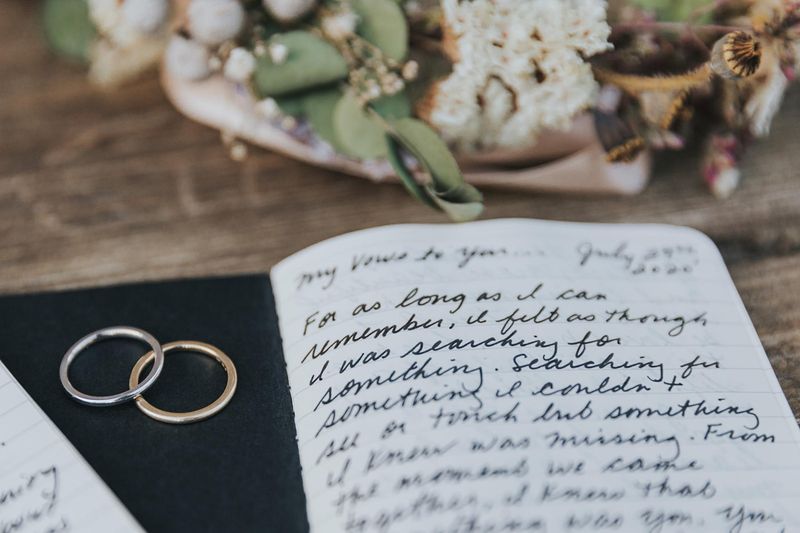 My Vows to You... July 29th,
2020
For as long as I can
remember, I felt as though
I was searching for
something. Searching for
something I couldn't
see or touch but something
I knew was missing. From
the moment we came
together, I knew that
something was you. You